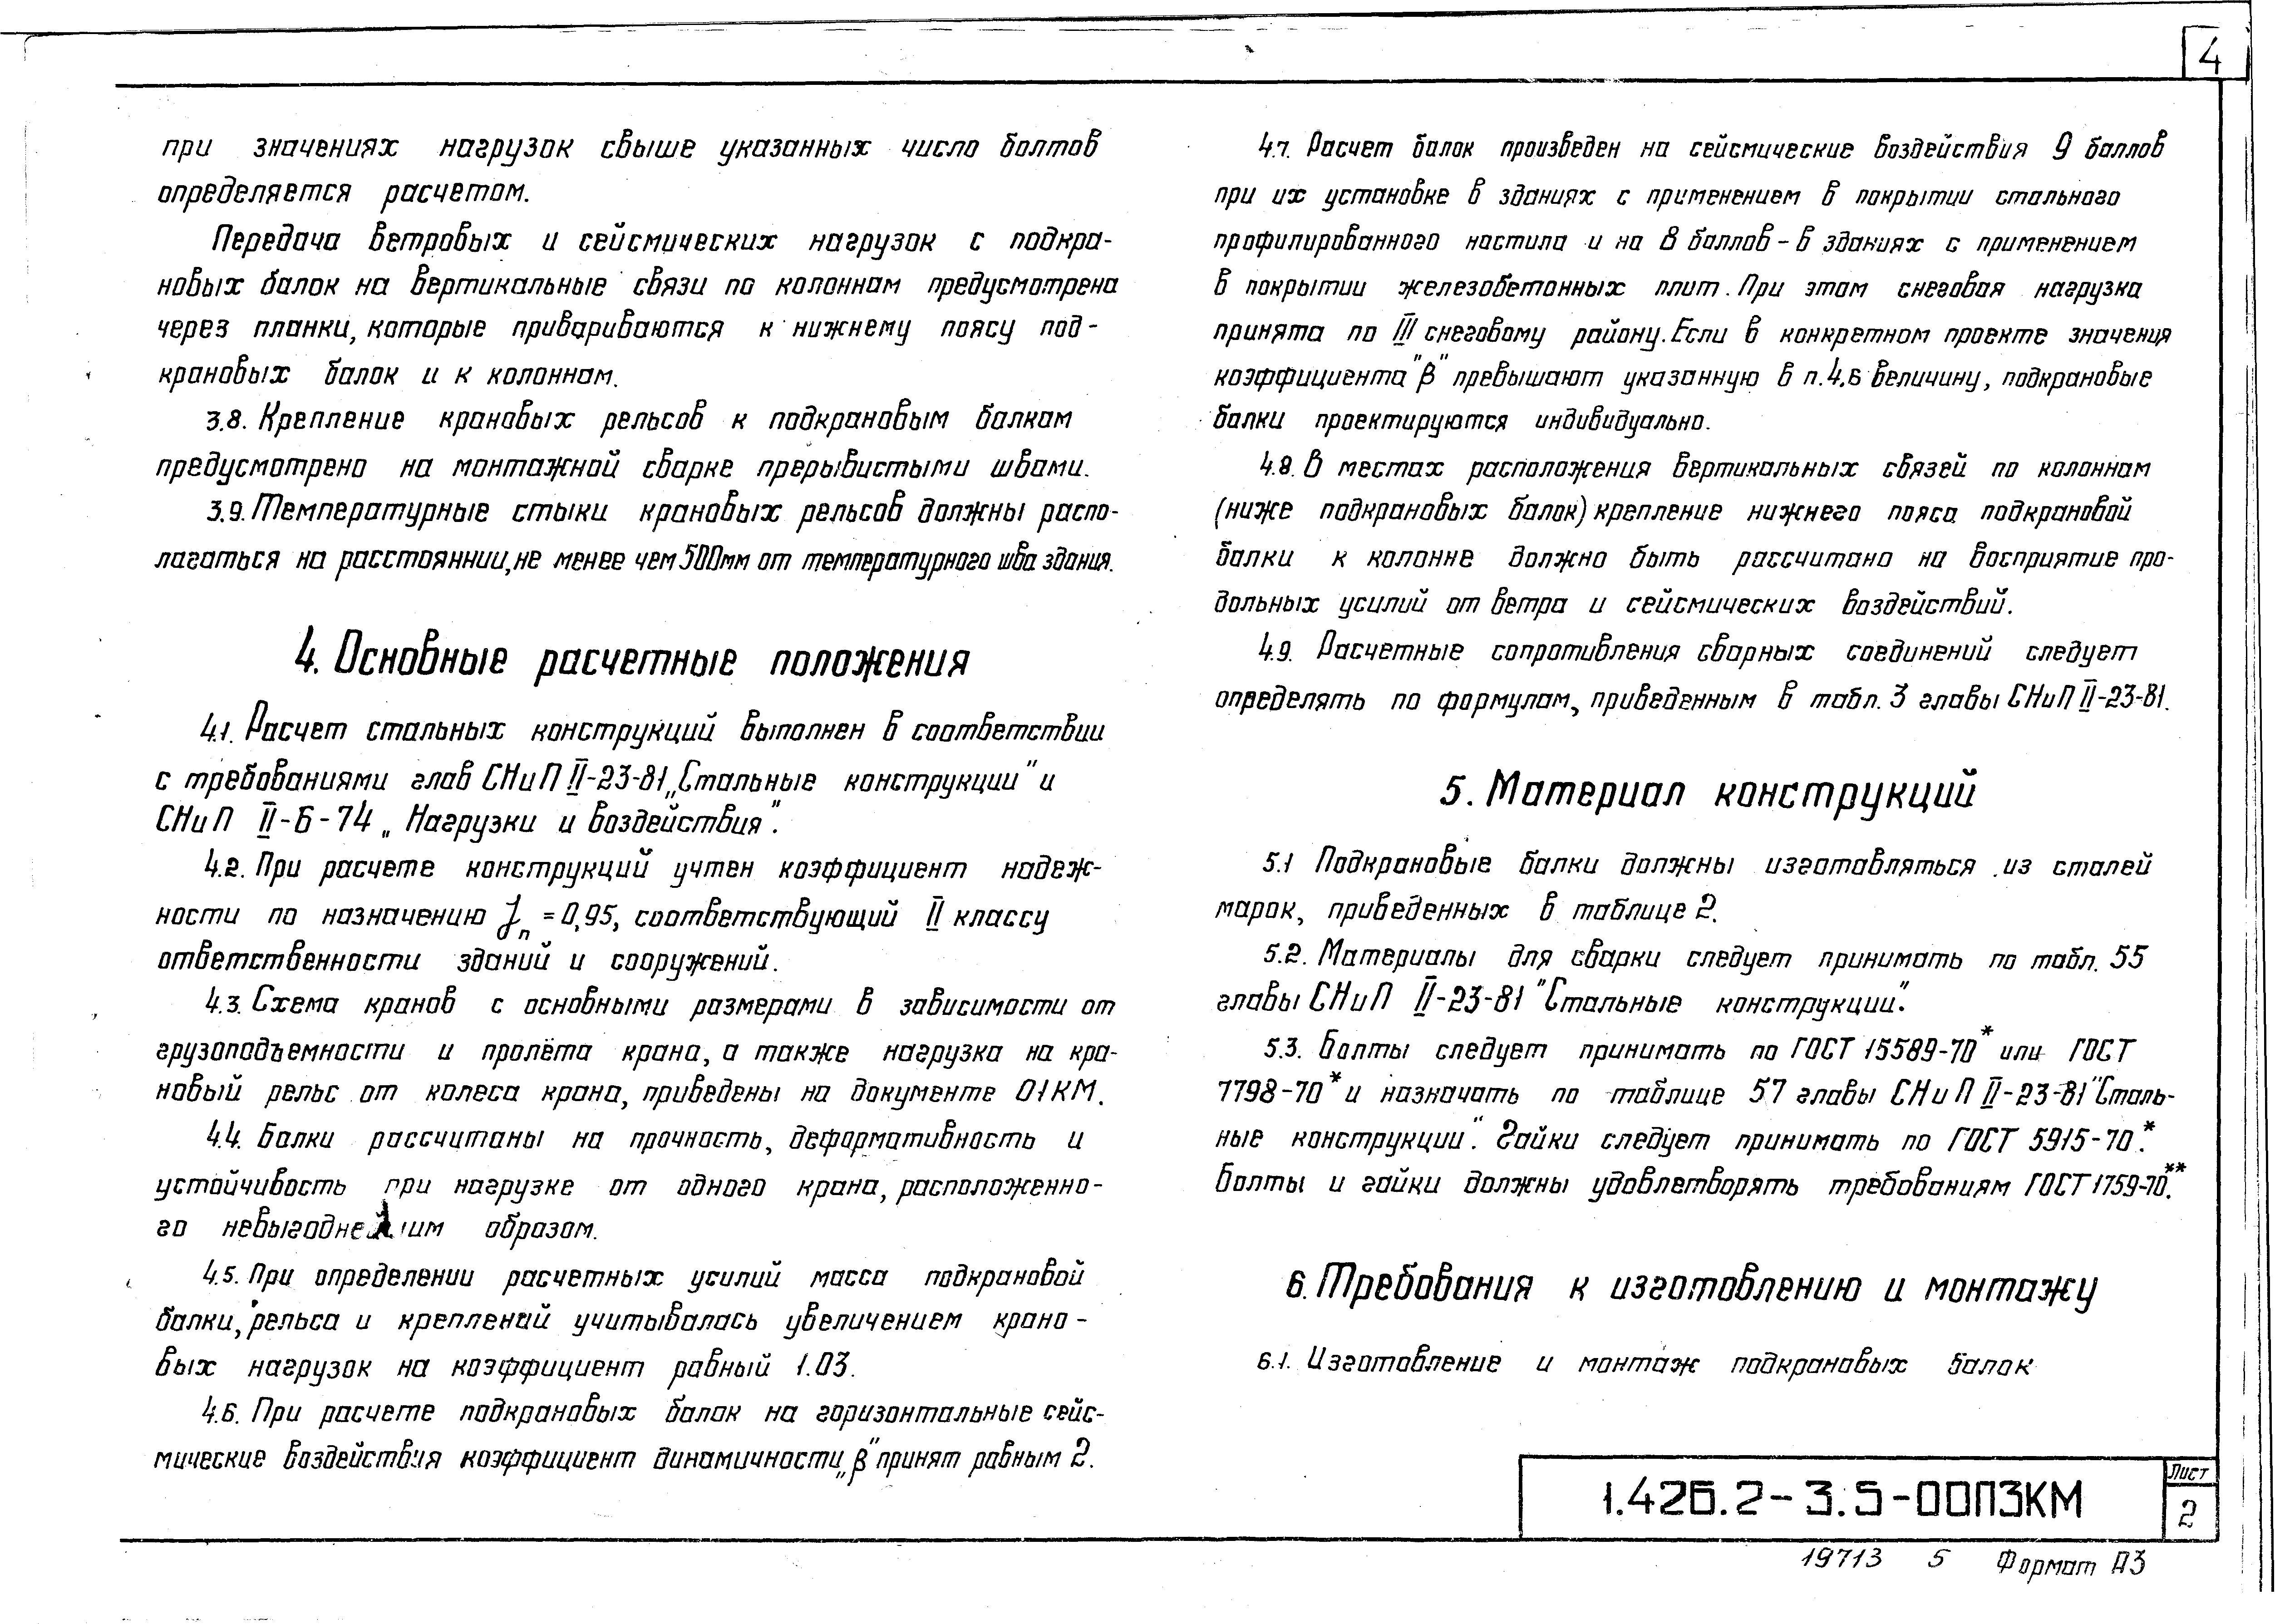 4
при значениях нагрузок свыше указанных число болтов
определяется расчетом.
Передача ветровых и сейсмических нагрузок с подкра-
новых балок на вертикальные связи по колоннам предусмотрена
через планки, которые привариваются к нижнему поясу под-
крановых балок и к колоннам.
3.8. Крепление крановых рельсов к подкрановым балкам
предусмотрено на монтажной сварке прерывистыми швами.
3.9. Температурные стыки крановых рельсов должны распо-
лагаться на расстояннии, не менее чем 500мм от температурного шва здания.
4. Основные расчетные положения
4.1. Расчет стальных конструкций выполнен в соответствии
с требованиями глав СНиП II-23-81 „Стальные конструкции" и
СНиП II-6-74 „Нагрузки и воздействия".
4.2. При расчете конструкций учтен коэффициент надеж-
ности по назначению γn = 0,95, соответствующий II классу
ответственности зданий и сооружений.
4.3. Схема кранов с основными размерами в зависимости от
грузоподъемности и пролёта крана, а также нагрузка на кра-
новый рельс от колеса крана, приведены на документе 01КМ.
4.4. Балки рассчитаны на прочность, деформативность и
устойчивость при нагрузке от одного крана, расположенно-
го невыгоднейшим образом.
4.5. При определении расчетных усилий масса подкрановой
балки, рельса и креплений учитывалась увеличением крано-
вых нагрузок на коэффициент равный 1.03.
4.6. При расчете подкрановых балок на горизонтальные сейс-
мические воздействия коэффициент динамичности „β" принят равным 2.
4.7. Расчет балок произведен на сейсмические воздействия 9 баллов
при их установке в зданиях с применением в покрытии стального
профилированного настила и на 8 баллов - в зданиях с применением
в покрытии железобетонных плит. При этом снеговая нагрузка
принята по III снеговому району. Если в конкретном проекте значения
коэффициента "β" превышают указанную в п.4.6 величину, подкрановые
балки проектируются индивидуально.
4.8. В местах расположения вертикальных связей по колоннам
(ниже подкрановых балок) крепление нижнего пояса подкрановой
балки к колонне должно быть рассчитано на восприятие про-
дольных усилий от ветра и сейсмических воздействий.
4.9. Расчетные сопротивления сварных соединений следует
определять по формулам, приведенным в табл. 3 главы СНиП II-23-81.
5. Материал конструкций
5.1 Подкрановые балки должны изготавляться из сталей
марок, приведенных в таблице 2.
5.2. Материалы для сварки следует принимать по табл. 55
главы СНиП II-23-81 "Стальные конструкции".
5.3. Болты следует принимать по ГОСТ 15589-70* или ГОСТ
7798-70* и назначать по таблице 57 главы СНиП II-23-81 "Сталь-
ные конструкции". Гайки следует принимать по ГОСТ 5915-70*.
Болты и гайки должны удовлетворять требованиям ГОСТ 1759-70**.
6. Требования к изготовлению и монтажу
6.1. Изготовление и монтаж подкрановых балок
1.426.2-3.5-00ПЗКМ
Лист
2
19713 5 Формат А3